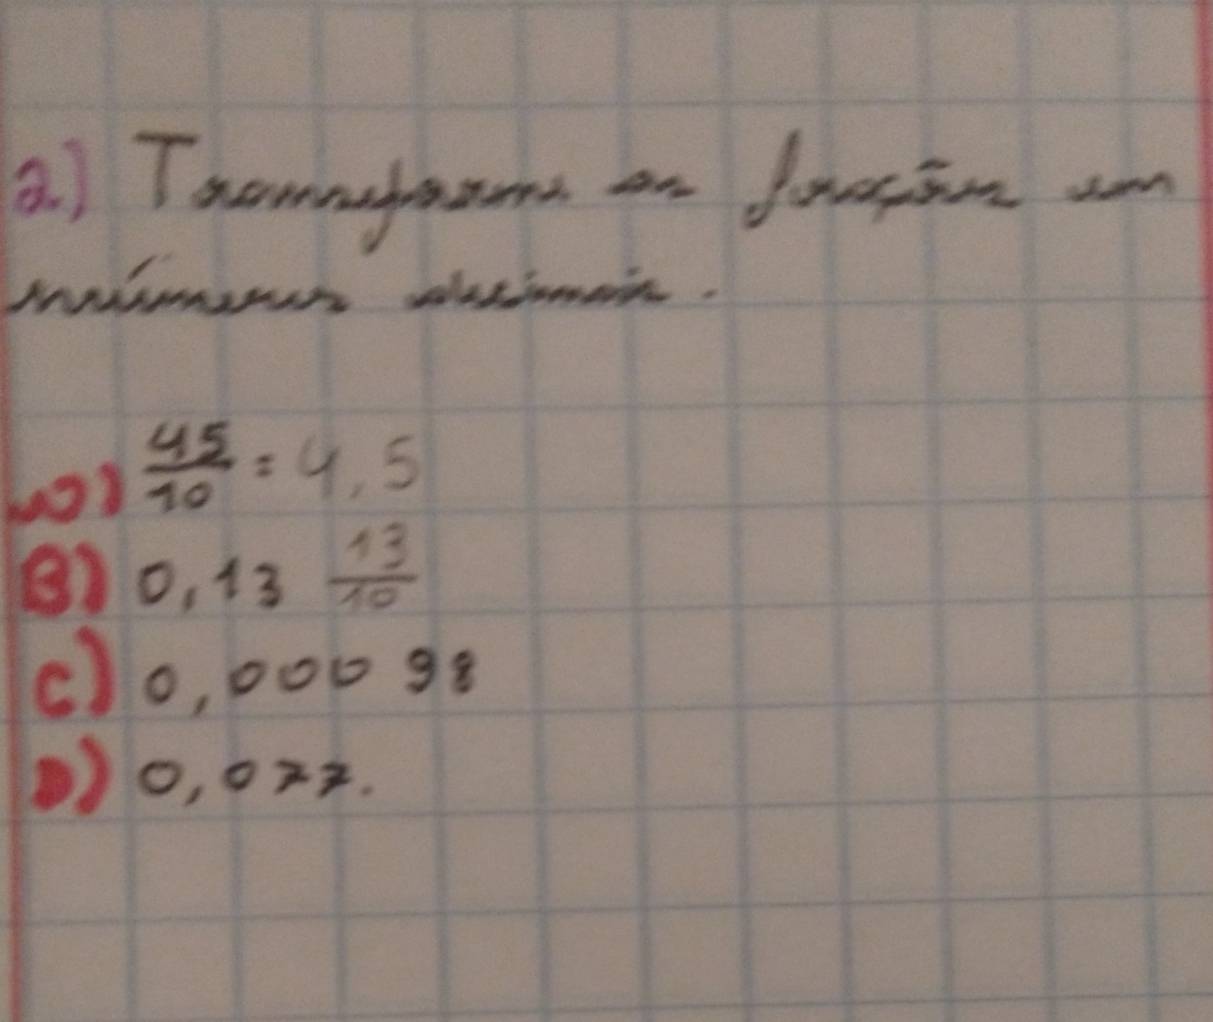 2.) Transforme as frações em
números decimais.
a) 45/10 = 4,5
B) 0,13 13/10
C) 0,00098
D) 0,077.